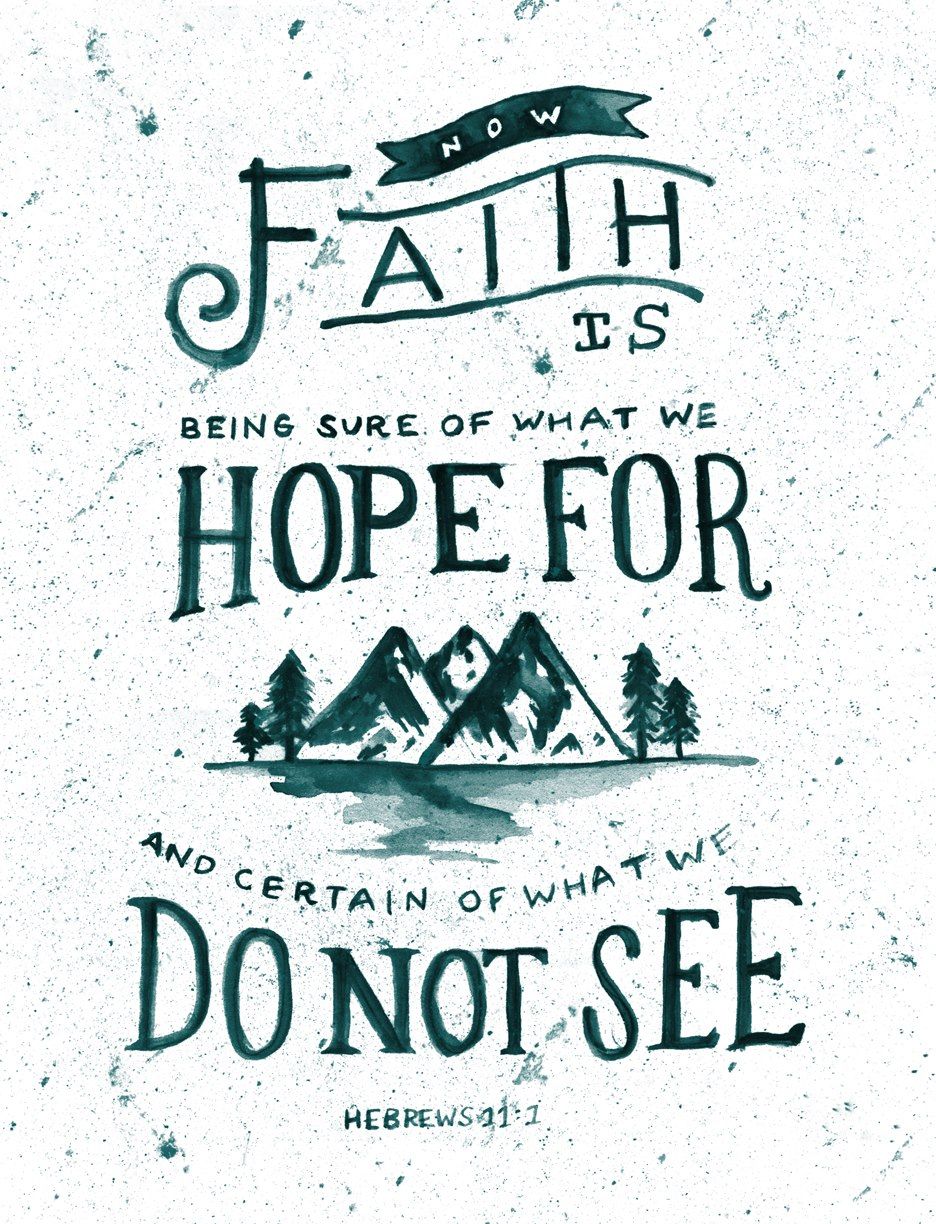 NOW
FAITH
IS
BEING SURE OF WHAT WE
HOPE FOR
AND CERTAIN OF WHAT WE
DO NOT SEE
HEBREWS 11:1